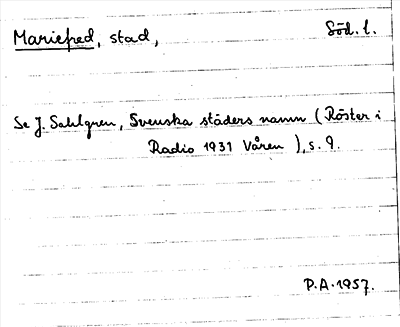 Mariefred, stad, Söd. l.
Se J. Sahlgren, Svenska städers namn (Röster i
Radio 1931 Våren), s. 9.
P.A. 1957.